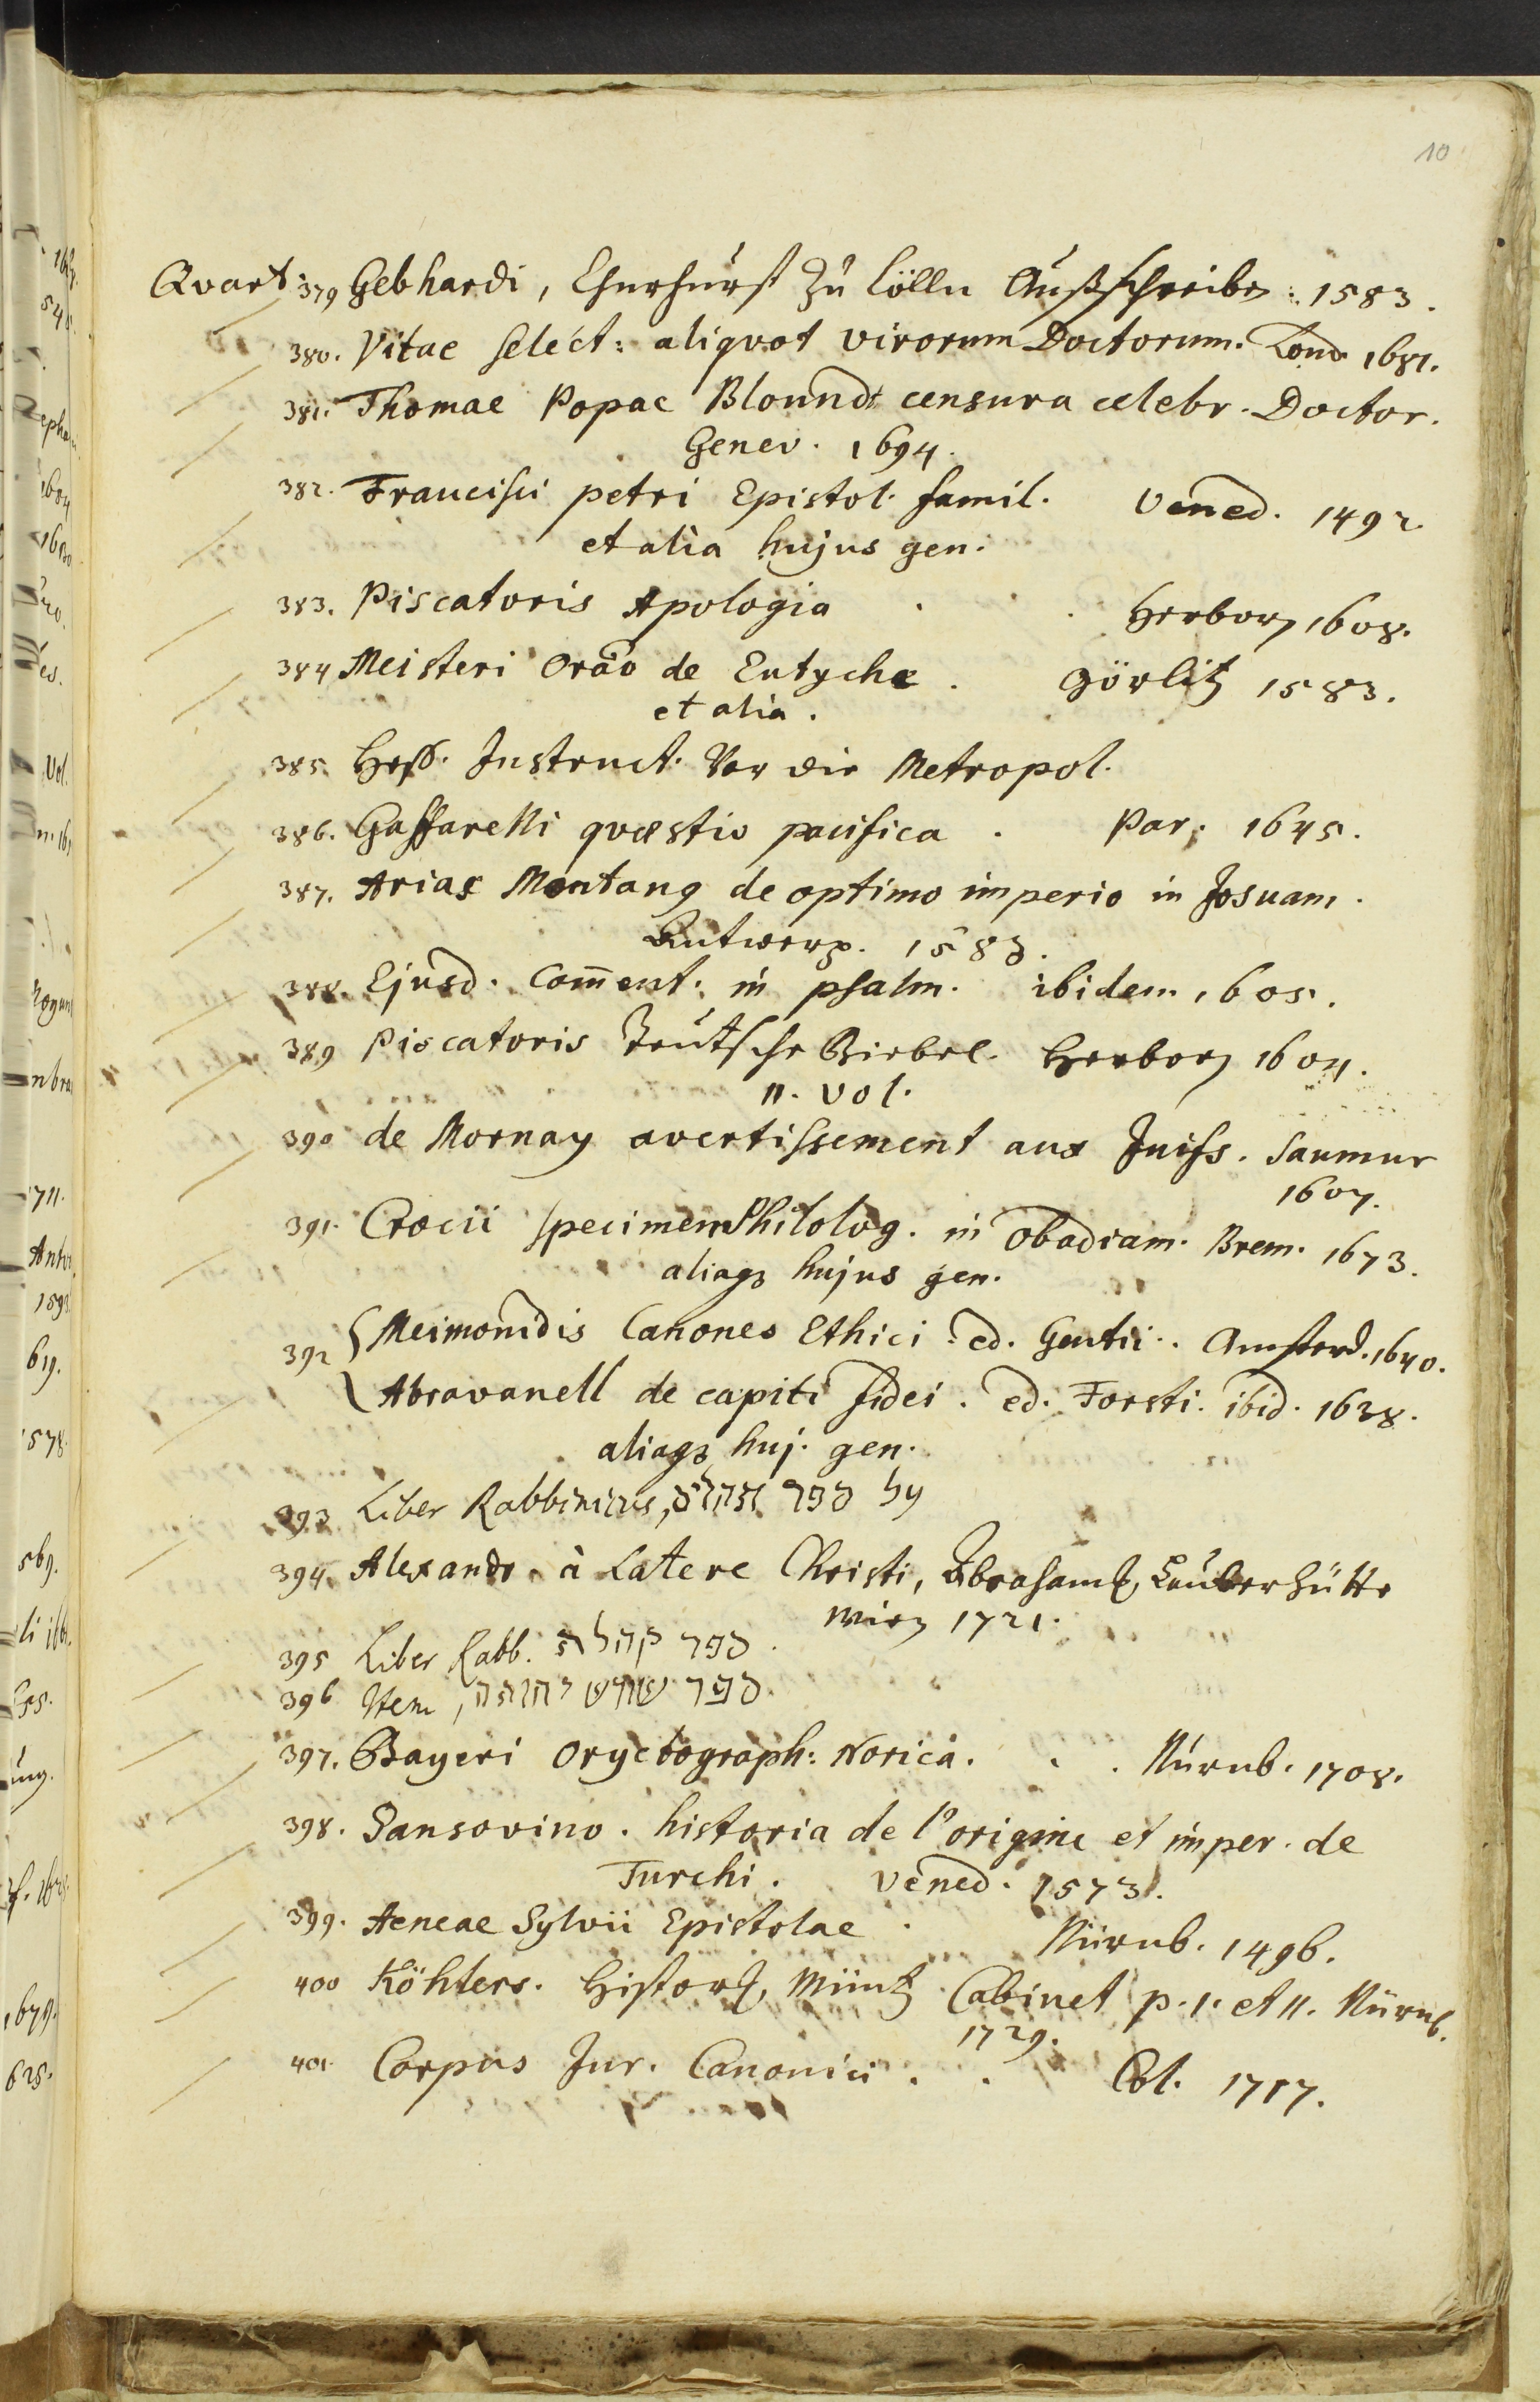 10
Qvart: 379 Gebhardi, Churfürst zu Cölln Außschreiben: 1583.
380. Vitae select: aliqvot virorum Doctorum. Lond 1681.
381. Thomae Popae Blount censura celebr. Doctor.
Genev. 1694.
382. Francisci petri Epistol. famil. Vened. 1492.
et alia hujus gen.
383. Piscatoris Apologia . . . Herborn 1608.
384 Meisteri Orao de Eutyche . Görlitz 1583.
et alia.
385. Heß. Instruct. Vor die Metropol.
386. Gaffarelli qvæstio pacifica . Par. 1645.
387. Arias Montanq de optimo imperio in Josuam.
Antwerp. 1583.
388. Ejusd. Com̄ent. in psalm. ibidem 1605.
389 Piscatoris Teutsche Biebel. Herborn 1604.
II. Vol.
390 de Mornay avertissement aux Juifs. Saumur
1607.
391. Crocii specimen Philolog. in Obadiam. Brem. 1673.
aliaq3 hujus gen.
392 { Meimonidis Canones Ethici. ed. Gentii. Amsterd. 1640.
Abravanell de capiti fidei. ed. Forsti. ibid. 1638.
aliaq3 huj. gen.
393 Liber Rabbinicus, על ספר
394. Alexandr. à Latere Christi, Abrahams Lauberhütte
Wien 1721.
395 Liber Rabb. ספר קהלת
396 Item, ספר שורש
397. Bayeri Oryctograph: Norica. . . Nürnb. 1708.
398. Sansovino. historia de l'origine et imper. de
Turchi. Vened. 1573.
399. Aeneae Sylvii Epistolae . Nürnb. 1496.
400 Köhlers. Histor. Müntz Cabinet p. I. et II. Nürnb.
1729.
401. Corpus Jur. Canonici . . Col. 1717.